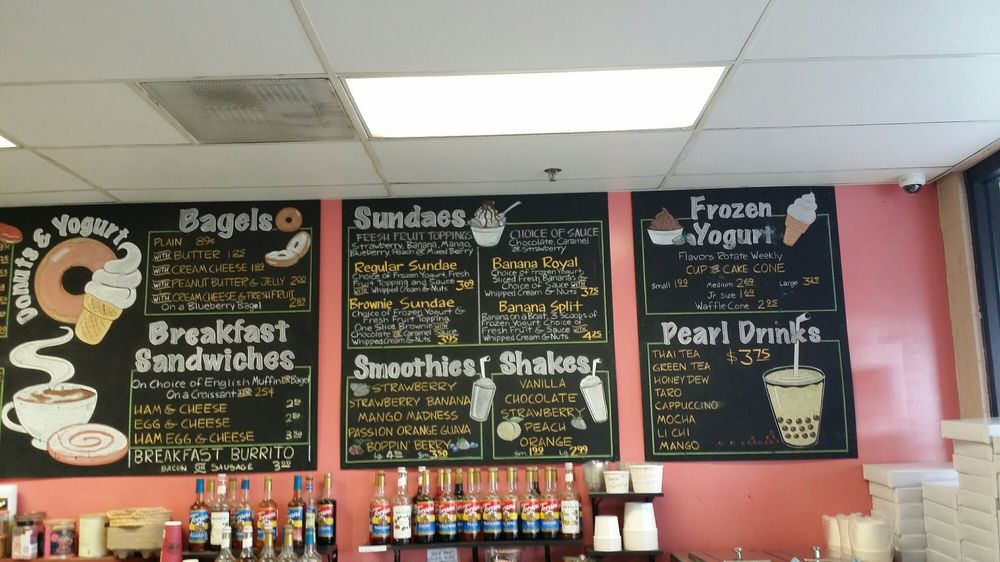 Donuts & Yogurt
Bagels
PLAIN 89¢
WITH BUTTER 1.25
WITH CREAM CHEESE 1.89
WITH PEANUT BUTTER & JELLY 2.00
WITH CREAM CHEESE & FRESH FRUIT
On a Blueberry Bagel 2.89
Breakfast
Sandwiches
On Choice of English Muffin OR Bagel
On a Croissant ADD 25¢
HAM & CHEESE
EGG & CHEESE
HAM EGG & CHEESE
BREAKFAST BURRITO
BACON OR SAUSAGE
Sundaes
FRESH FRUIT TOPPINGS
Strawberry, Banana, Mango,
Blueberry, Peach or Mixed Berry
CHOICE OF SAUCE
Chocolate, Caramel
or Strawberry
Regular Sundae
Choice of Frozen Yogurt, Fresh
Fruit Topping and Sauce
WITH Whipped Cream & Nuts 3.69
Brownie Sundae
Choice of Frozen Yogurt &
Fresh Fruit Topping
One Slice Brownie WITH
Chocolate or Caramel Sauce
Whipped Cream & Nuts 3.95
Banana Royal
Choice of Frozen Yogurt,
Sliced Fresh Bananas &
Choice of Sauce WITH
Whipped Cream & Nuts 3.75
Banana Split
Banana on a Boat, 3 Scoops of
Frozen Yogurt, Choice of
Fresh Fruit & Sauce WITH
Whipped Cream & Nuts 4.25
Smoothies
STRAWBERRY
STRAWBERRY BANANA
MANGO MADNESS
PASSION ORANGE GUAVA
BOPPIN' BERRY
Sm 3.50
Shakes
VANILLA
CHOCOLATE
STRAWBERRY
PEACH
ORANGE
Sm 1.99 Lg 2.99
Frozen
Yogurt
Flavors Rotate Weekly
CUP OR CAKE CONE
Small Medium 2.69 Large
Jr. Size
Waffle Cone 2.95
Pearl Drinks
$3.75
THAI TEA
GREEN TEA
HONEYDEW
TARO
CAPPUCCINO
MOCHA
LI CHI
MANGO
Torani